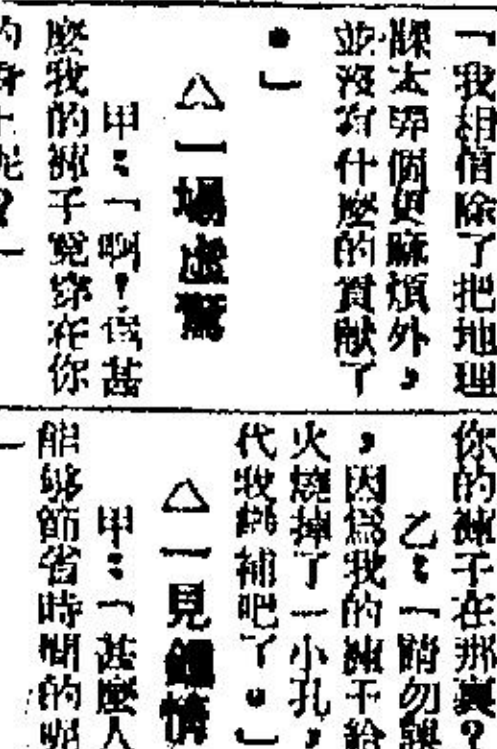 「我相信除了把地理
課太弄個更麻煩外，
並沒有什麼的貢献了
。」
△一場虛驚
甲：「啊！為甚
麼我的褲子竟穿在你
的身上呢？」
你的褲子在那裏？
乙：「請勿誤
，因為我的褲子給
火燒掉了一小孔，
代我縫補吧了。」
△一見鍾情
甲：「甚麼人
能够節省時間的呢